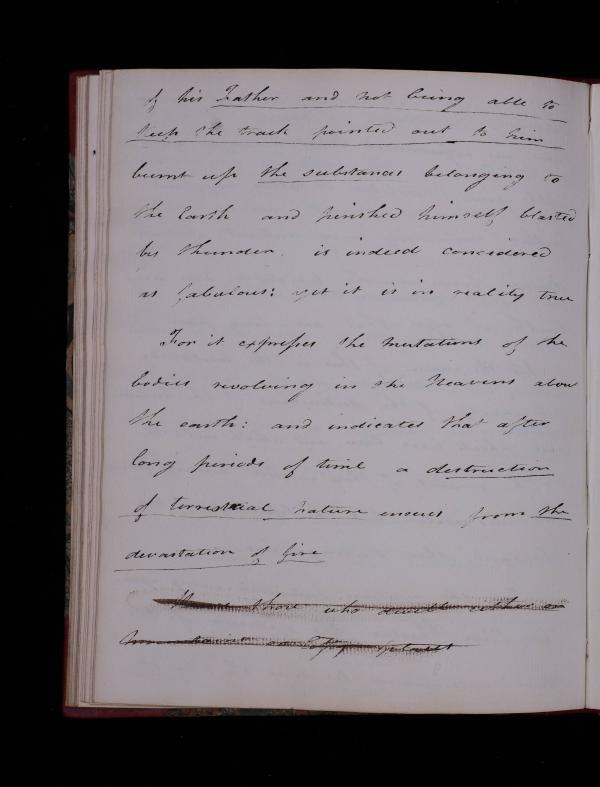 of his Father and not being able to
keep the track pointed out to him
burnt up the substances belonging to
the Earth and perished himself, blasted
by thunder. is indeed considered
as fabulous: yet it is in reality true
For it expresses the mutations of the
bodies revolving in the Heavens about
the earth: and indicates that after
long periods of time a destruction
of terrestrial nature ensues from the
devastation of fire
those who dwell either on
mountains or lofty places